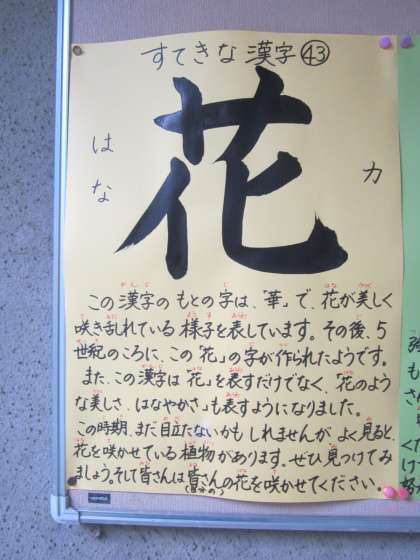 すてきな漢字㊸
花
はな
カ
この漢字のもとの字は、「華」で、花が美しく
咲き乱れている様子を表しています。その後、5
世紀のころに、この「花」の字が作られたようです。
また、この漢字は「花」を表すだけでなく、「花のよう
な美しさ、はなやかさ」も表すようになりました。
この時期、まだ目立たないかもしれませんが、よく見ると、
花を咲かせている植物があります。ぜひ見つけてみ
ましょう。そして皆さんは皆さんの花を咲かせてください。
(自分の)